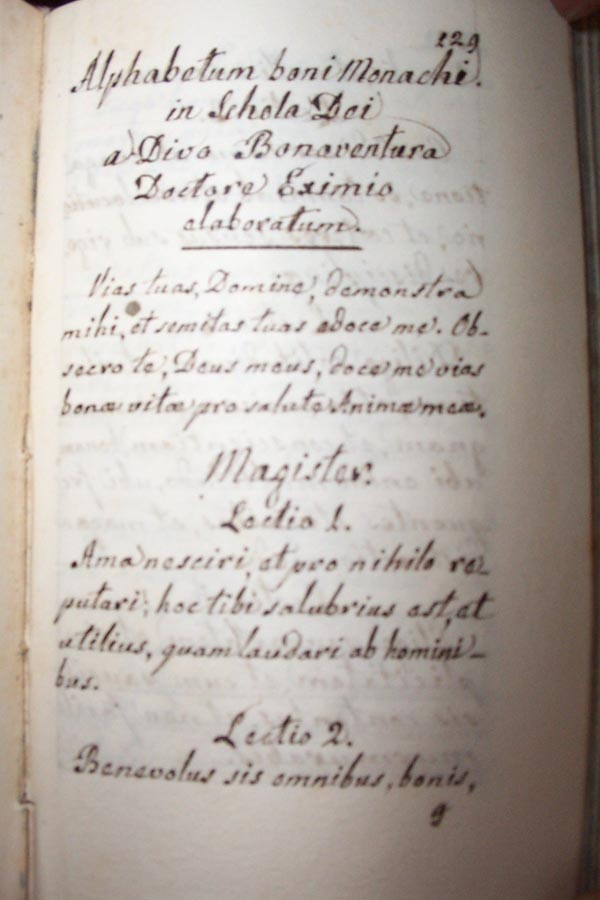 129
Alphabetum boni Monachi.
in Schola Dei
a Divo Bonaventura
Doctore Eximio
elaboratum.
Vias tuas, Domine, demonstra
mihi, et semitas tuas edoce me. Ob-
secro te, Deus meus, doce me vias
bonæ vitæ pro salute Animæ meæ.
Magister.
Lectio 1.
Ama nesciri, et pro nihilo re-
putari; hoc tibi salubrius est, et
utilius, quam laudari ab homini-
bus.
Lectio 2.
Benevolus sis omnibus, bonis,
9